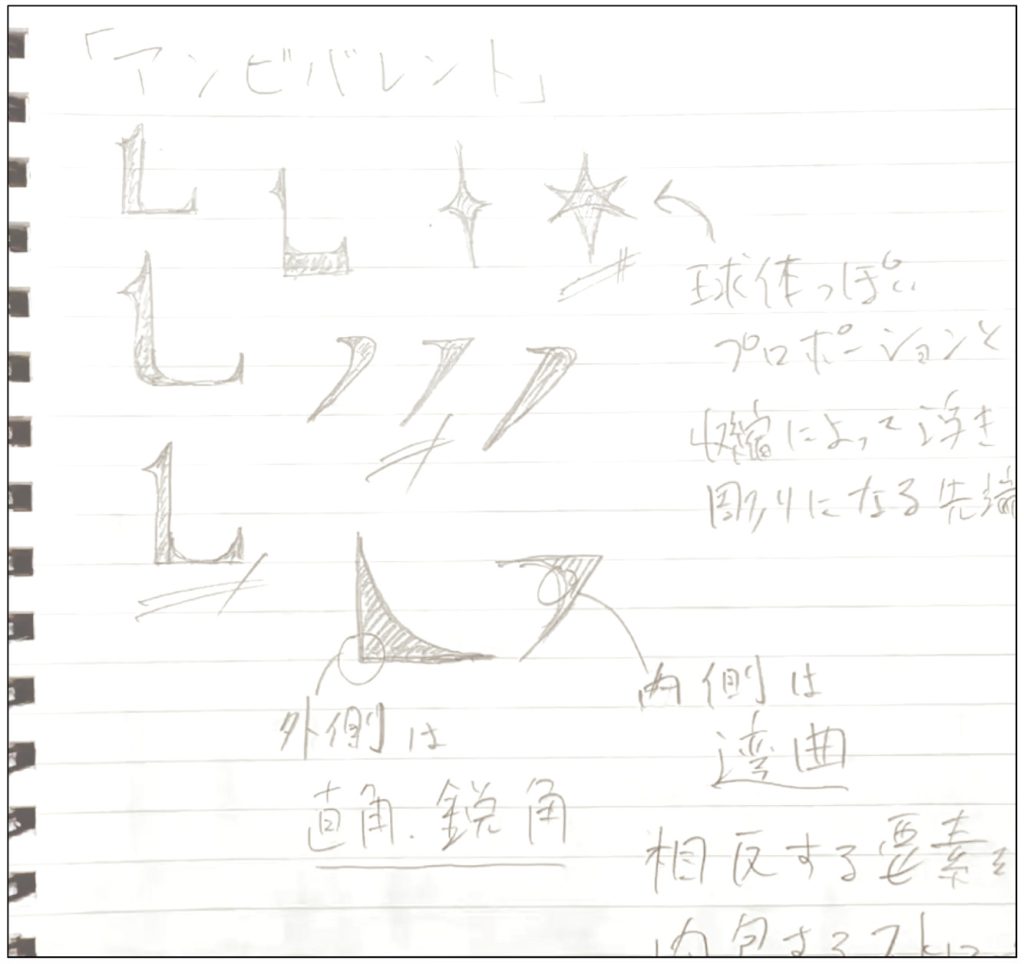 「アンビバレント」
球体っぽい
プロポーションと
収縮によって浮き
彫りになる先端
外側は
直角.鋭角
内側は
湾曲
相反する要素を
内包する